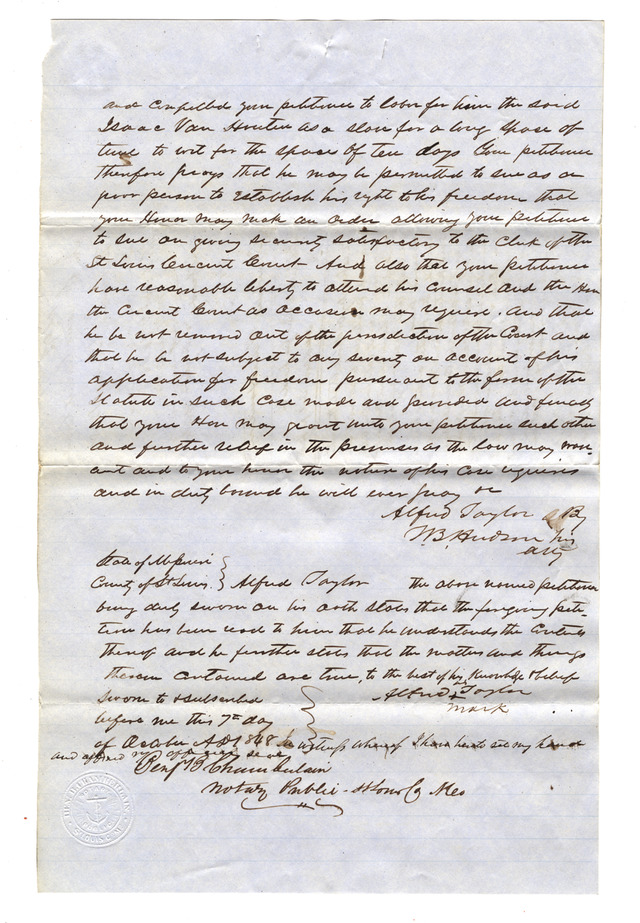 and compelled your petitioner to labor for him the said
Isaac Van Houten as a slave for a long space of
time to wit for the space of ten days Your petitioner
therefore prays that he may be permitted to sue as a
poor person to establish his right to his freedom that
your Honor may make an order allowing your petitioner
to sue on giving security satisfactory to the Clerk of the
St Louis Circuit Court And also that your petitioner
have reasonable liberty to attend his counsel and the Hon
the Circuit Court as occasion may require. And that
he be not removed out of the jurisdiction of the Court and
that he be not subject to any severity on account of his
application for freedom pursuant to the form of the
Statute in such case made and provided and finally
that your Hon may grant unto your petitioner such other
and further relief in the premises as the law may warr-
ant and to your honor the nature of his case requires
and in duty bound he will ever pray &c
Alfred Taylor By
W.B. Hudson his
atty
State of Missouri
County of St Louis } Alfred Taylor the above named petitioner
being duly sworn on his oath states that the foregoing peti-
tion has been read to him that he understands the contents
thereof and he further states that the matters and things
therein contained are true, to the best of his knowledge & belief
Sworn to & subscribed } Alfred + Taylor
before me this 7th day mark
of October AD 1848 In witness whereof I have hereto set my hand
and affixed my official seal
Benj B Chamberlain
Notary Public St Louis Co Mo